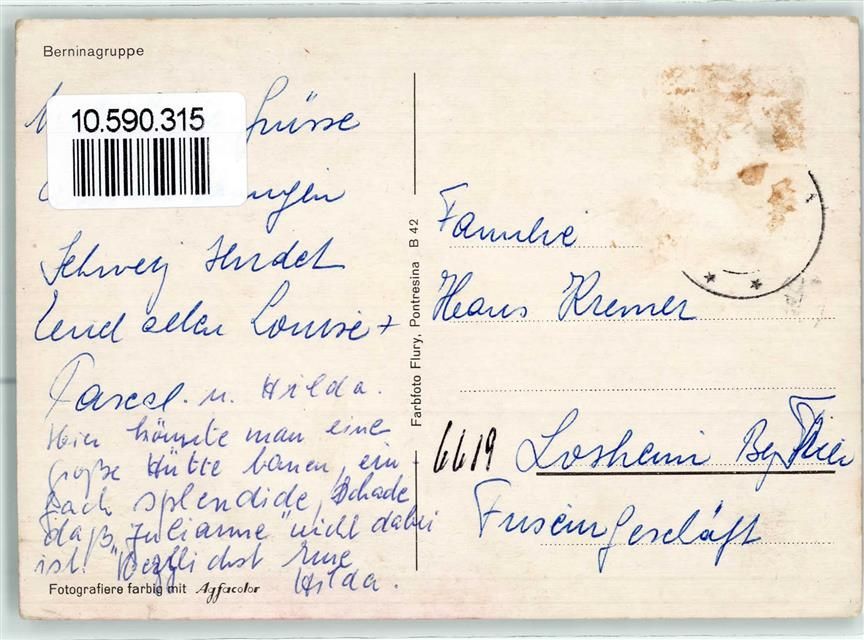 Berninagruppe
10.590.315
Grüsse
Schweiz sendet
Louise +
u. Hilda.
Hier könnte man eine
große Hütte bauen, ein-
fach splendide, Schade
daß "Julianne" nicht dabei
ist. Herzlichst Eure
Hilda.
Fotografiere farbig mit Agfacolor
Farbfoto Flury, Pontresina B 42
Familie
Hans Kremer
6619 Losheim Bez Trier
Friseurgeschäft